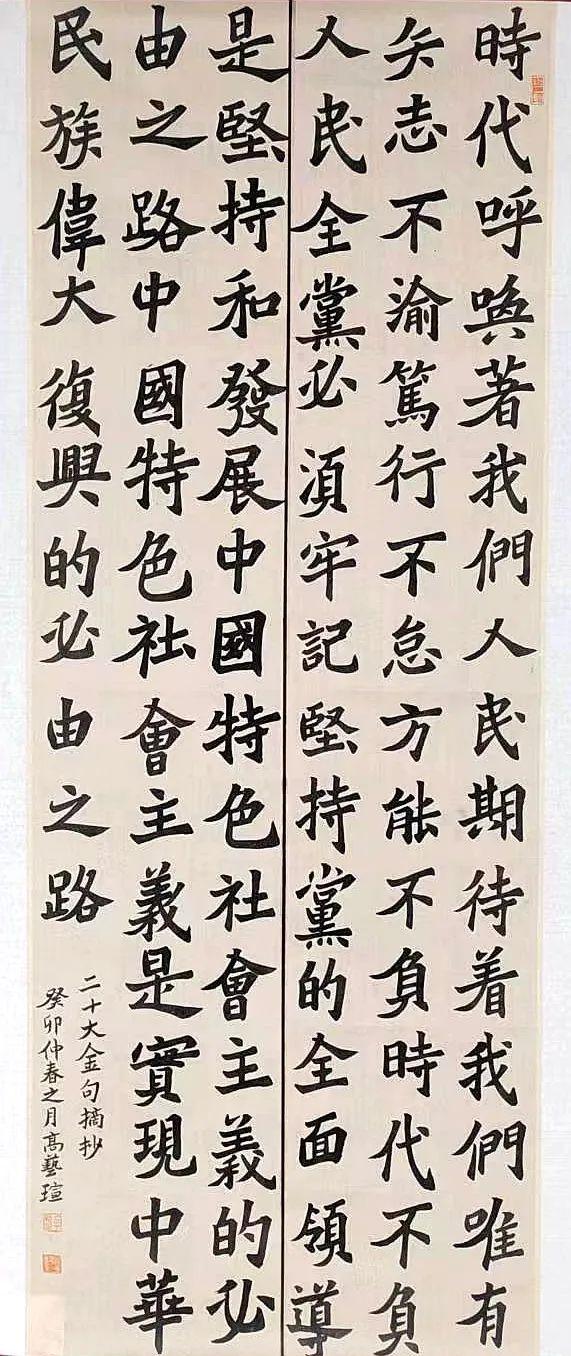 時代呼喚著我們人民期待着我們唯有
矢志不渝篤行不怠方能不負時代不負
人民全黨必須牢記堅持黨的全面領導
是堅持和發展中國特色社會主義的必
由之路中國特色社會主義是實現中華
民族偉大復興的必由之路
二十大金句摘抄
癸卯仲春之月高藝瑄